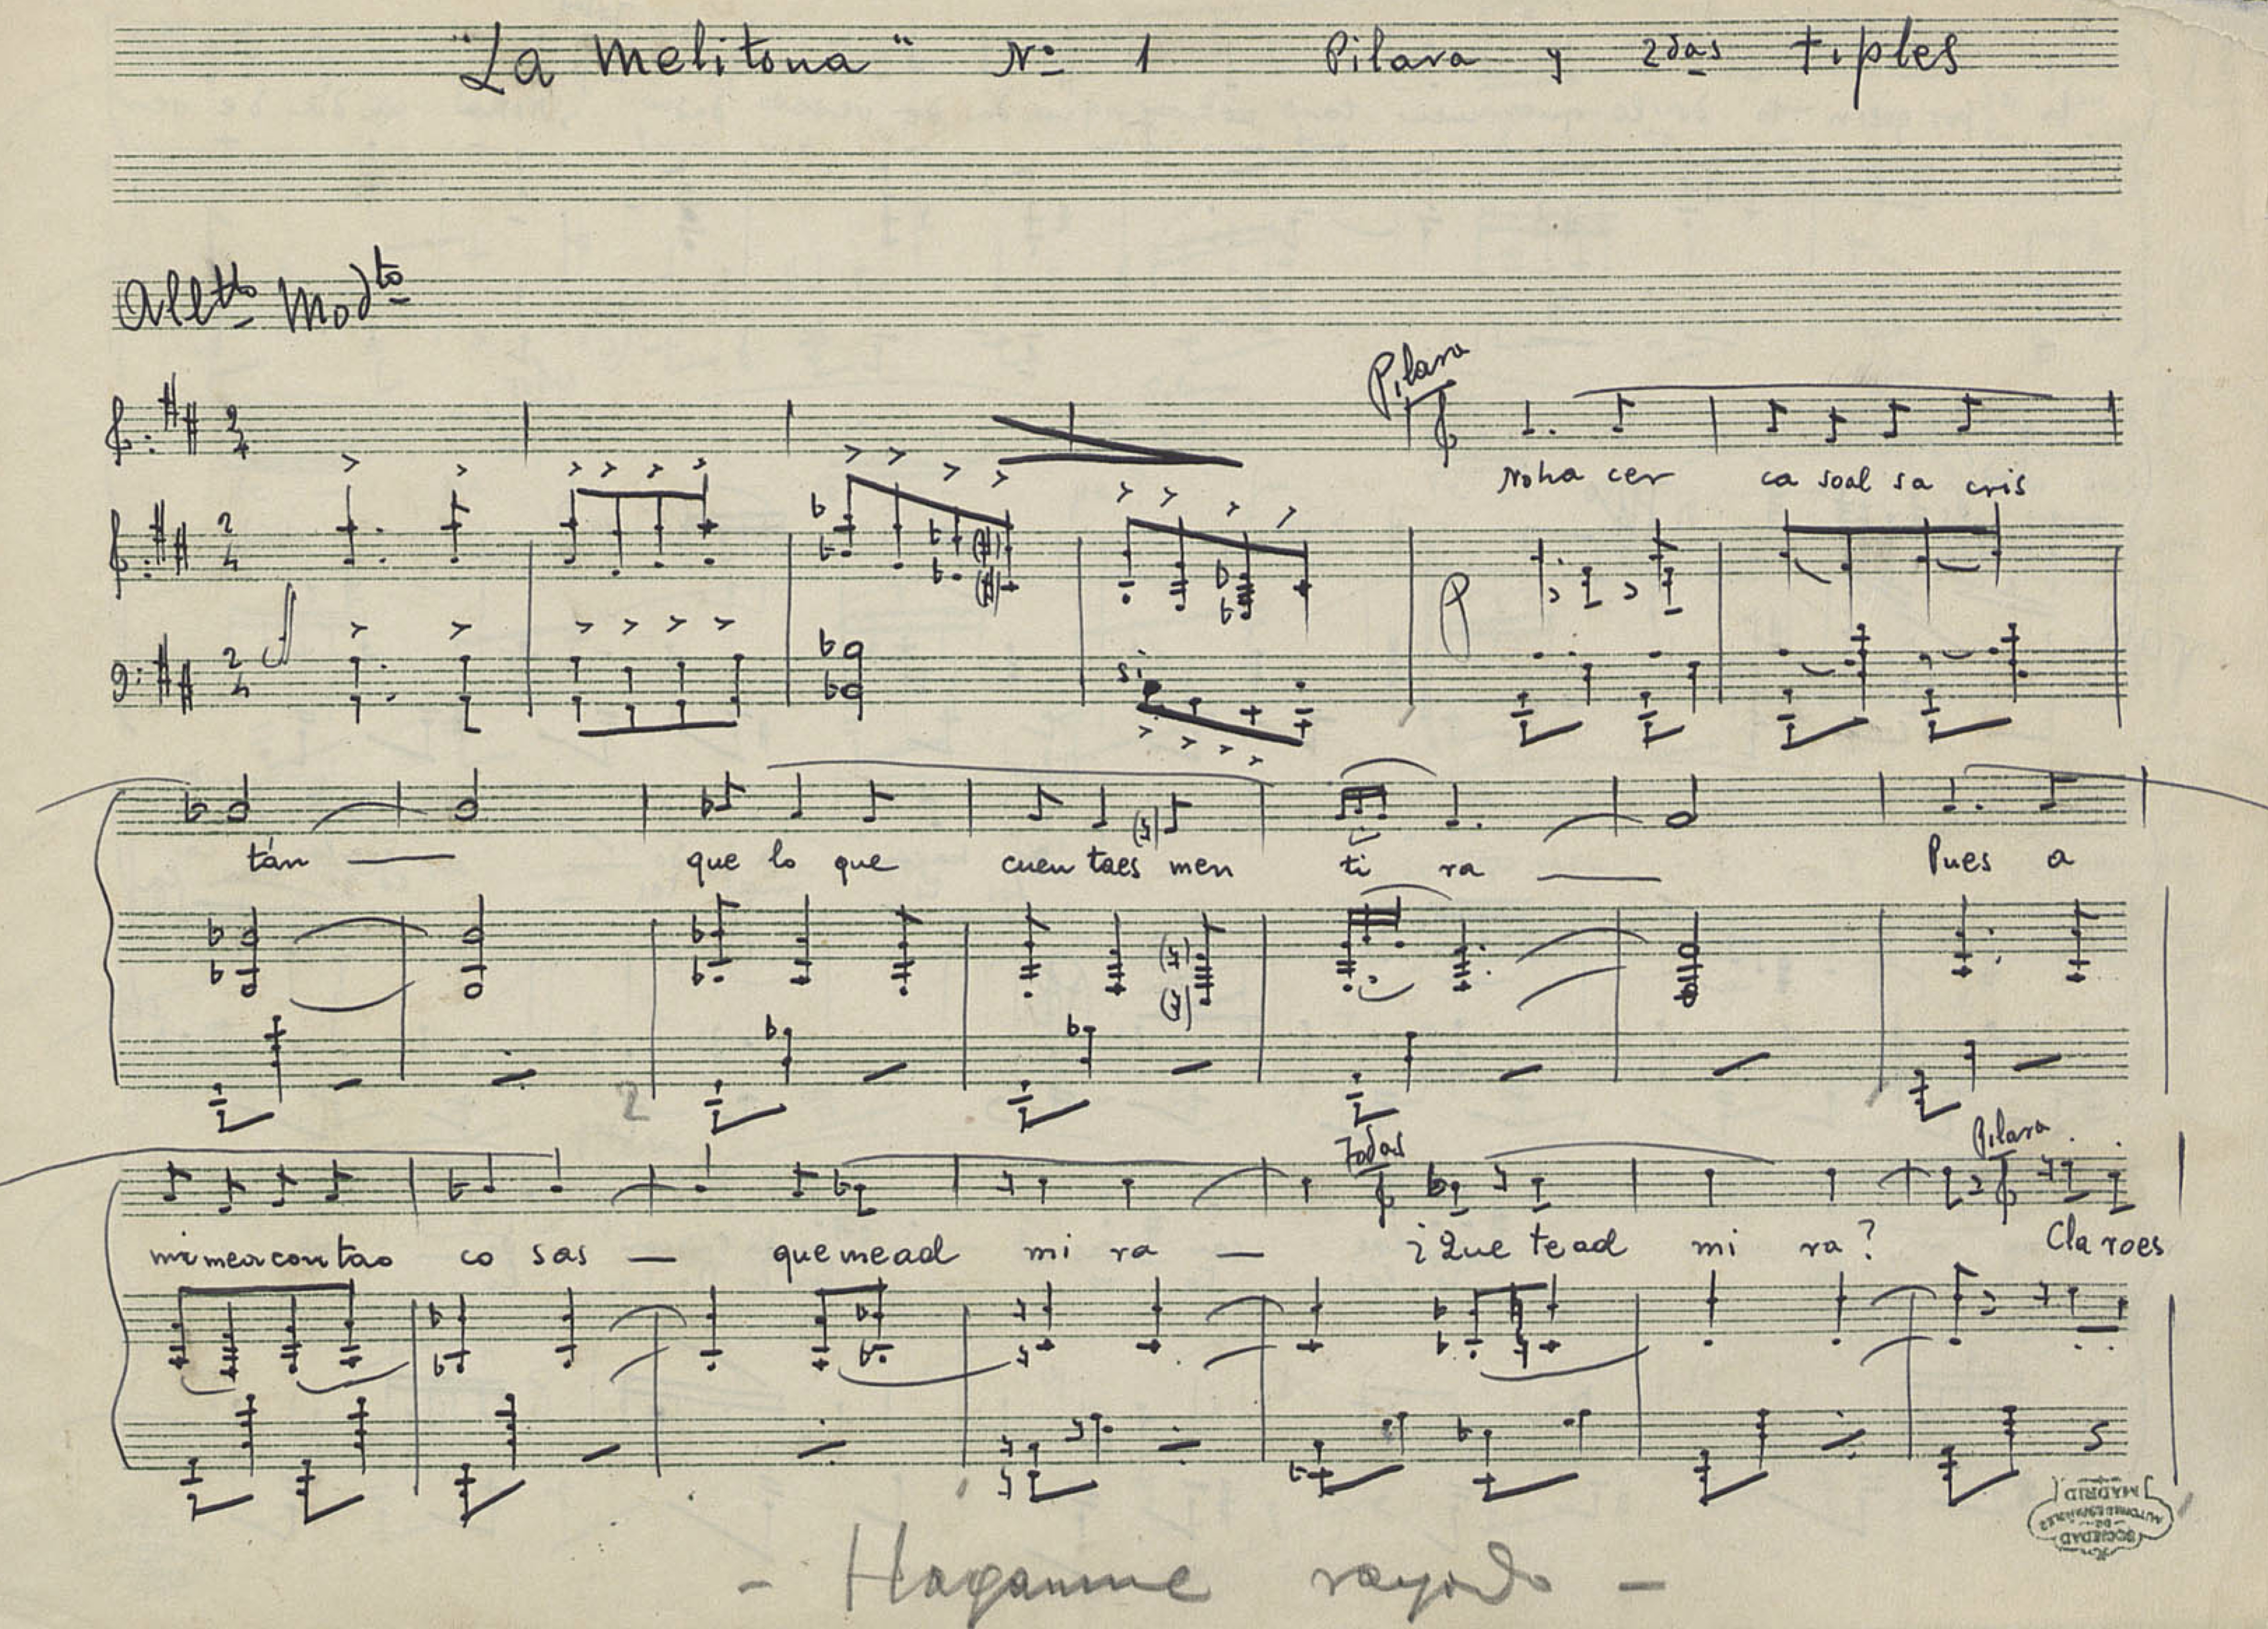 "La Melitona" Nº 1 Pilara y 2das tiples
Alltto Modto
Pilara
Noha cer ca soal sa cris
si
tán — que lo que cuen taes men ti ra — Pues a
2
Todas Pilara
mi mean con tao co sas — que mead mi ra — ¿Que tead mi ra? Cla roes
SOCIEDAD DE AUTORES ESPAÑOLES MADRID
- Haganme rayado -